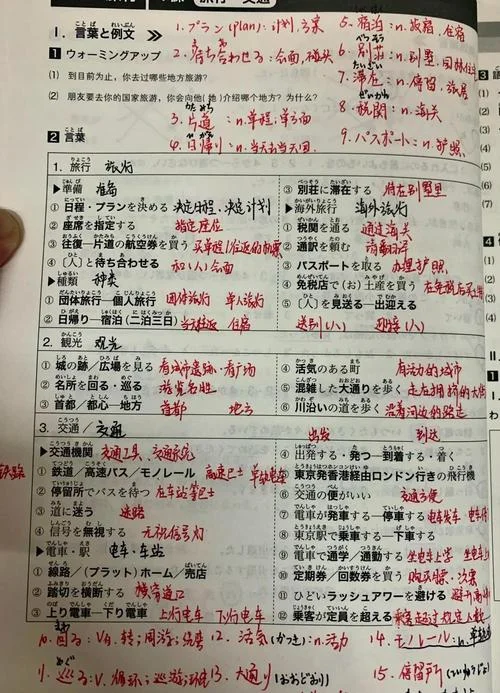 I. 言葉と例文
1. プラン(plan):计划,方案
5. 宿泊:n.投宿,住宿
1 ウォーミングアップ
2. 待ち合わせる:会面,碰头
6. 別荘:n.别墅
(1) 到目前为止,你去过哪些地方旅游?
7. 滞在:n.停留,旅居
(2) 朋友要去你的国家旅游,你会向他(她)介绍哪个地方?为什么?
3. 片道:n.单程,单方面
8. 税関:n.海关
4. 日帰り:n.当天去当天回
9. パスポート:n.护照
2 言葉
1. 旅行 旅行
▶準備 准备
① 日程・プランを決める 决定日程、决定计划
② 座席を指定する 指定座位
③ 往復―片道の航空券を買う
④ (人)と待ち合わせる 和(人)会面
▶種類 种类
① 団体旅行―個人旅行 团体旅行 单人旅行
② 日帰り―宿泊(二泊三日) 当天往返 住宿
③ 別荘に滞在する 待在别墅里
▶海外旅行 海外旅行
① 税関を通る 通过海关
② 通訳を頼む 请翻译
③ パスポートを取る 办理护照
④ 免税店で(お)土産を買う
⑤ (人)を見送る―出迎える
送别(人) 迎接(人)
2. 観光 观光
① 城の跡/広場を見る 看城市遗迹、看广场
② 名所を回る・巡る 游览名胜
③ 首都/都心―地方 首都 地方
④ 活気のある町 有活力的城市
⑤ 混雑した大通りを歩く 走在拥挤的大街
⑥ 川沿いの道を歩く 沿着河边的路走
3. 交通/交通
▶交通機関 交通工具、交通系统
① 鉄道/高速バス/モノレール 高速巴士 单轨电车
② 停留所でバスを待つ 在车站等巴士
③ 道に迷う 迷路
④ 信号を無視する 无视信号灯
▶電車・駅 电车・车站
① 線路/(プラット)ホーム/売店
② 踏切を横断する 横穿道口
③ 上り電車―下り電車 上行电车 下行电车
出发 到达
④ 出発する・発つ―到着する・着く
⑤ 東京発香港経由ロンドン行きの飛行機
⑥ 交通の便がいい 交通方便
⑦ 電車が発車する―停車する 电车发车、电车停
⑧ 東京駅で乗車する―下車する
⑨ 電車で通学/通勤する 坐电车上学
⑩ 定期券/回数券を買う
⑪ ひどいラッシュアワーを避ける
⑫ 電車が定員を超える 乘客超过规定人数
10. 回る:
12. 活気(かつき):n.活力
14. モノレール:n.
11. 巡る:v.循环;巡游;
13. 大通り(おおどおり)
15. 停留所